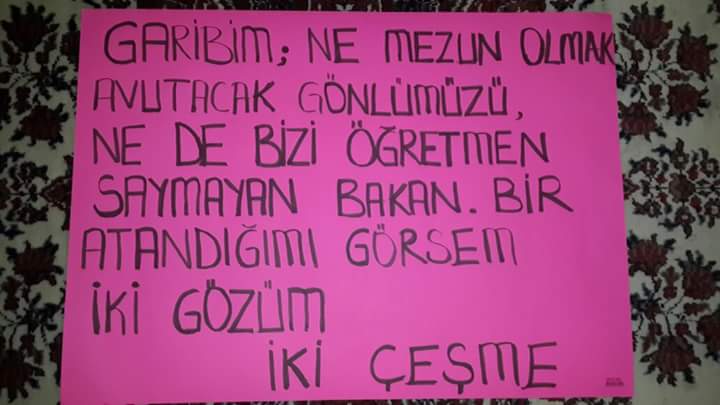 GARİBİM; NE MEZUN OLMAK
AVUTACAK GÖNLÜMÜZÜ,
NE DE BİZİ ÖĞRETMEN
SAYMAYAN BAKAN. BİR
ATANDIĞIMI GÖRSEM
İKİ GÖZÜM
İKİ ÇEŞME